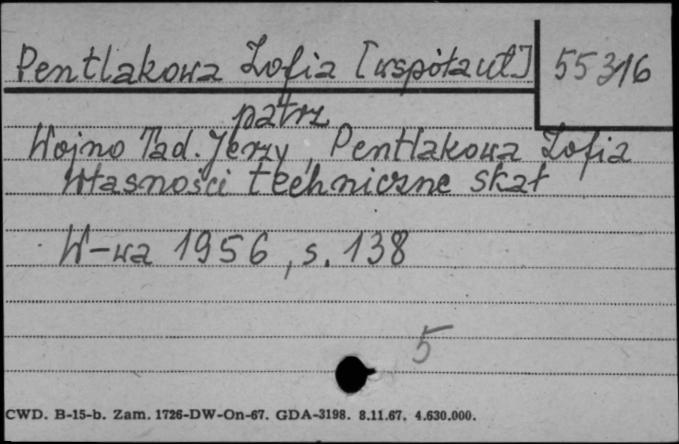 Pentlakowa Zofia [współaut]
55316
patrz
Wojno Tad. Jerzy, Pentlakowa Zofia
Własności techniczne skał
W-wa 1956, s. 138
5
CWD. B-15-b. Zam. 1726-DW-On-67. GDA-3198. 8.11.67. 4.630.000.